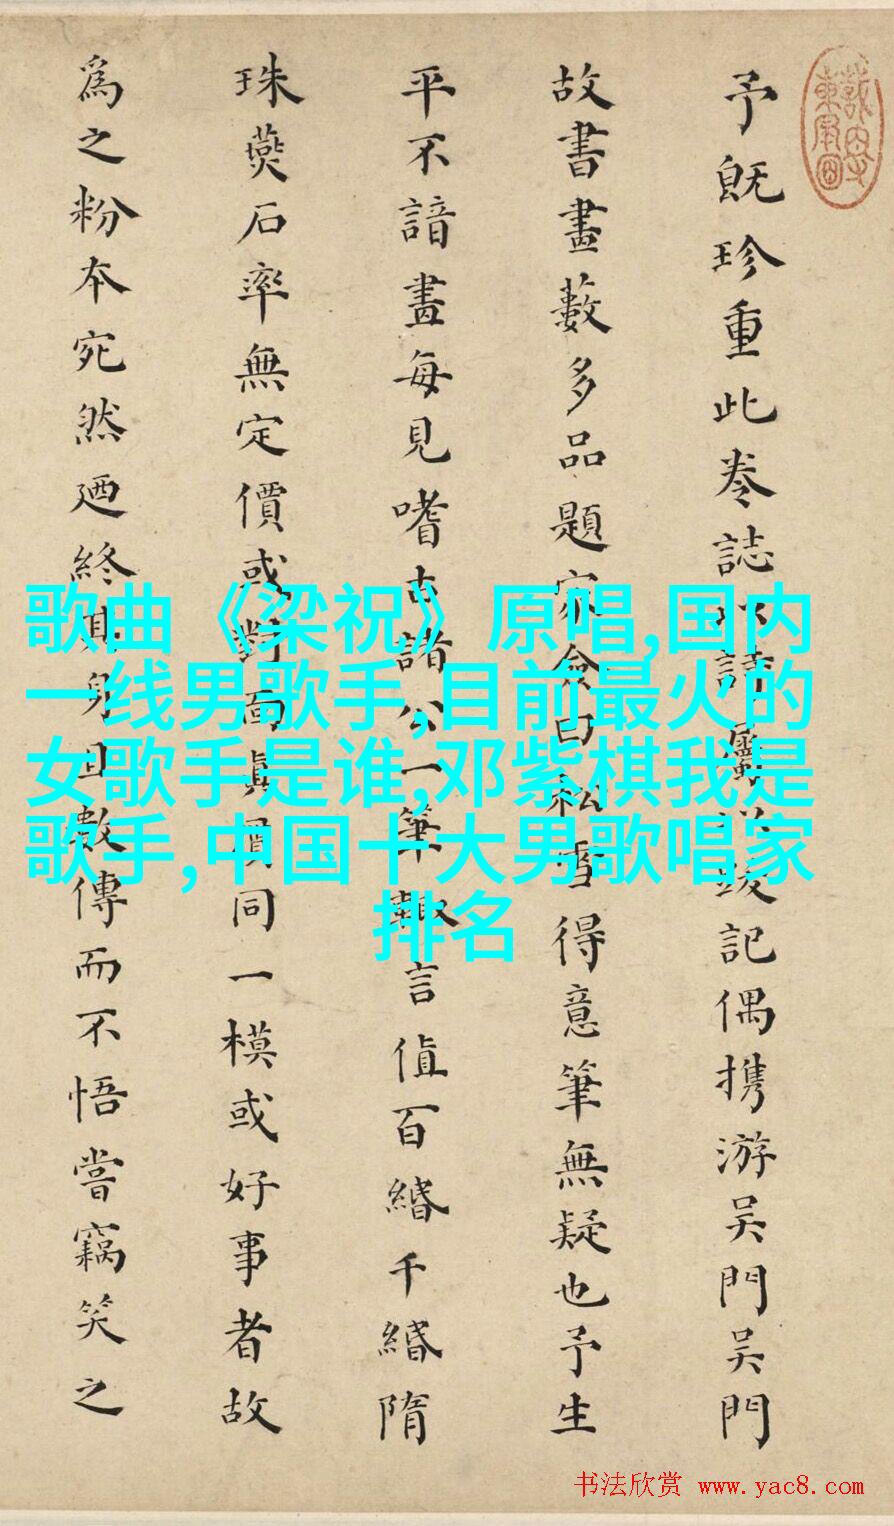 予既珍重此卷誌
記偶携游吴門吴門
故書畫藪多品題家僉曰松雪得意筆無疑也予生
平不諳畫每見嗜古諸公一筆輙言值百緡千緡隋
珠燕石率無定價或對面真贋同一模或好事者故
爲之粉本宛然迺終其身且數傳而不悟嘗竊笑之
歌曲《梁祝》原唱,国内
一线男歌手,目前最火的
女歌手是谁,邓紫棋我是
歌手,中国十大男歌唱家
排名
书法欣赏 www.yac8.com